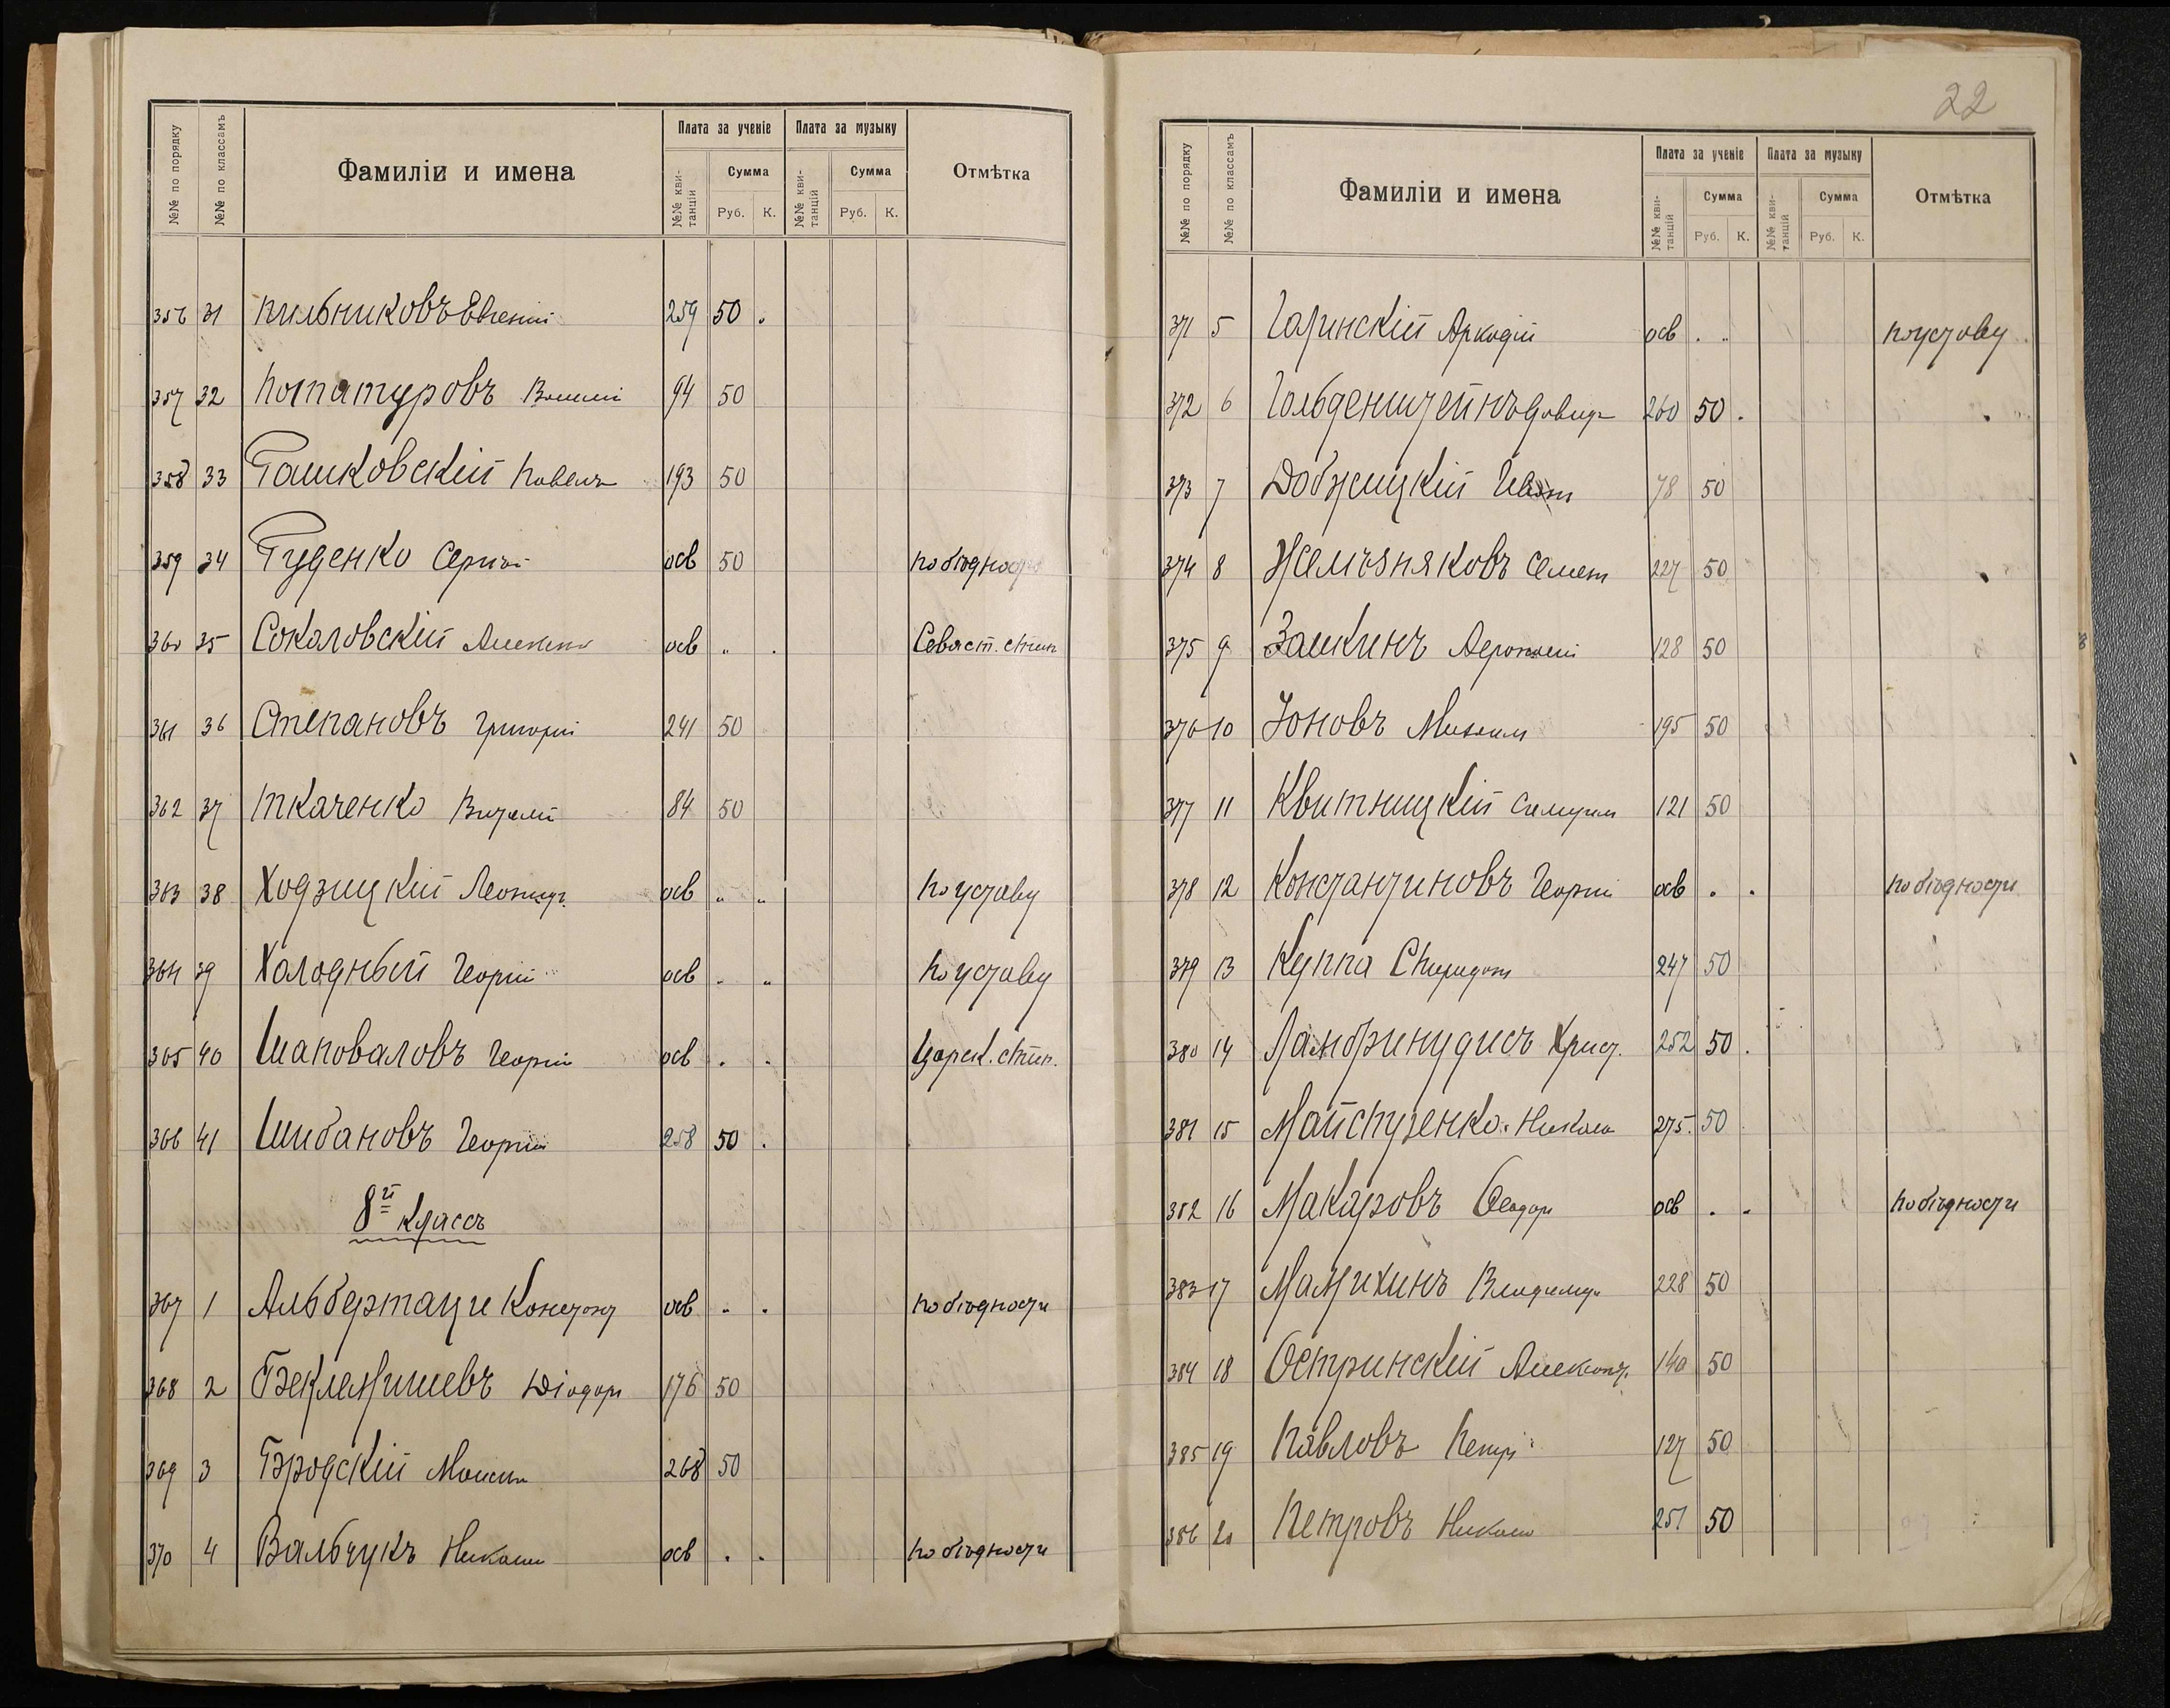 №№ по порядку №№ по классамъ Фамиліи и имена Плата за ученіе Плата за музыку Отмѣтка
№№ кви-танцій Сумма Руб. К. №№ кви-танцій Сумма Руб. К.
356 31 Пильниковъ Евгеній 259 50 .
357 32 Потатуровъ 94 50
358 33 Рашковскій Павелъ 193 50
359 34 Руденко Сергѣй осв 50 по бѣдности
360 35 Соколовскій осв " . Севаст. стип
361 36 Степановъ Григорій 241 50
362 37 Ткаченко Виталій 84 50
363 38 Ходзицкій Леонидъ осв " " по уставу
364 39 Холодный Георгій осв . " по уставу
365 40 Шаповаловъ Георгій осв . . Царск. стип.
366 41 Шибановъ Георгій 258 50 .
8й классъ
367 1 Альбертаци осв " . по бѣдности
368 2 Беклемишевъ Діодоръ 176 50
369 3 Бродскій 268 50
370 4 Вальчукъ Николай осв . . по бѣдности
22
№№ по порядку №№ по классамъ Фамиліи и имена Плата за ученіе Плата за музыку Отмѣтка
№№ кви-танцій Сумма Руб. К. №№ кви-танцій Сумма Руб. К.
371 5 Аркадій осв . " по уставу
372 6 Гольденштейнъ Давидъ 260 50 .
373 7 Добжицкій Иванъ 78 50
374 8 Желѣзняковъ Семенъ 227 50
375 9 Зашкинъ 128 50
376 10 Іоновъ Михаилъ 195 50
377 11 Квитницкій 121 50
378 12 Константиновъ Георгій осв . . по бѣдности
379 13 Куппа Спиридонъ 247 50
380 14 Ламбринудисъ Христ. 252 50 .
381 15 Майстренко Николай 275. 50
382 16 Макаровъ Ѳеодоръ осв . . по бѣдности
383 17 Мамихинъ Владиміръ 228 50
384 18 Остринскій Александръ 140 50
385 19 Павловъ Петръ 127 50
386 20 Петровъ Николай 251 50